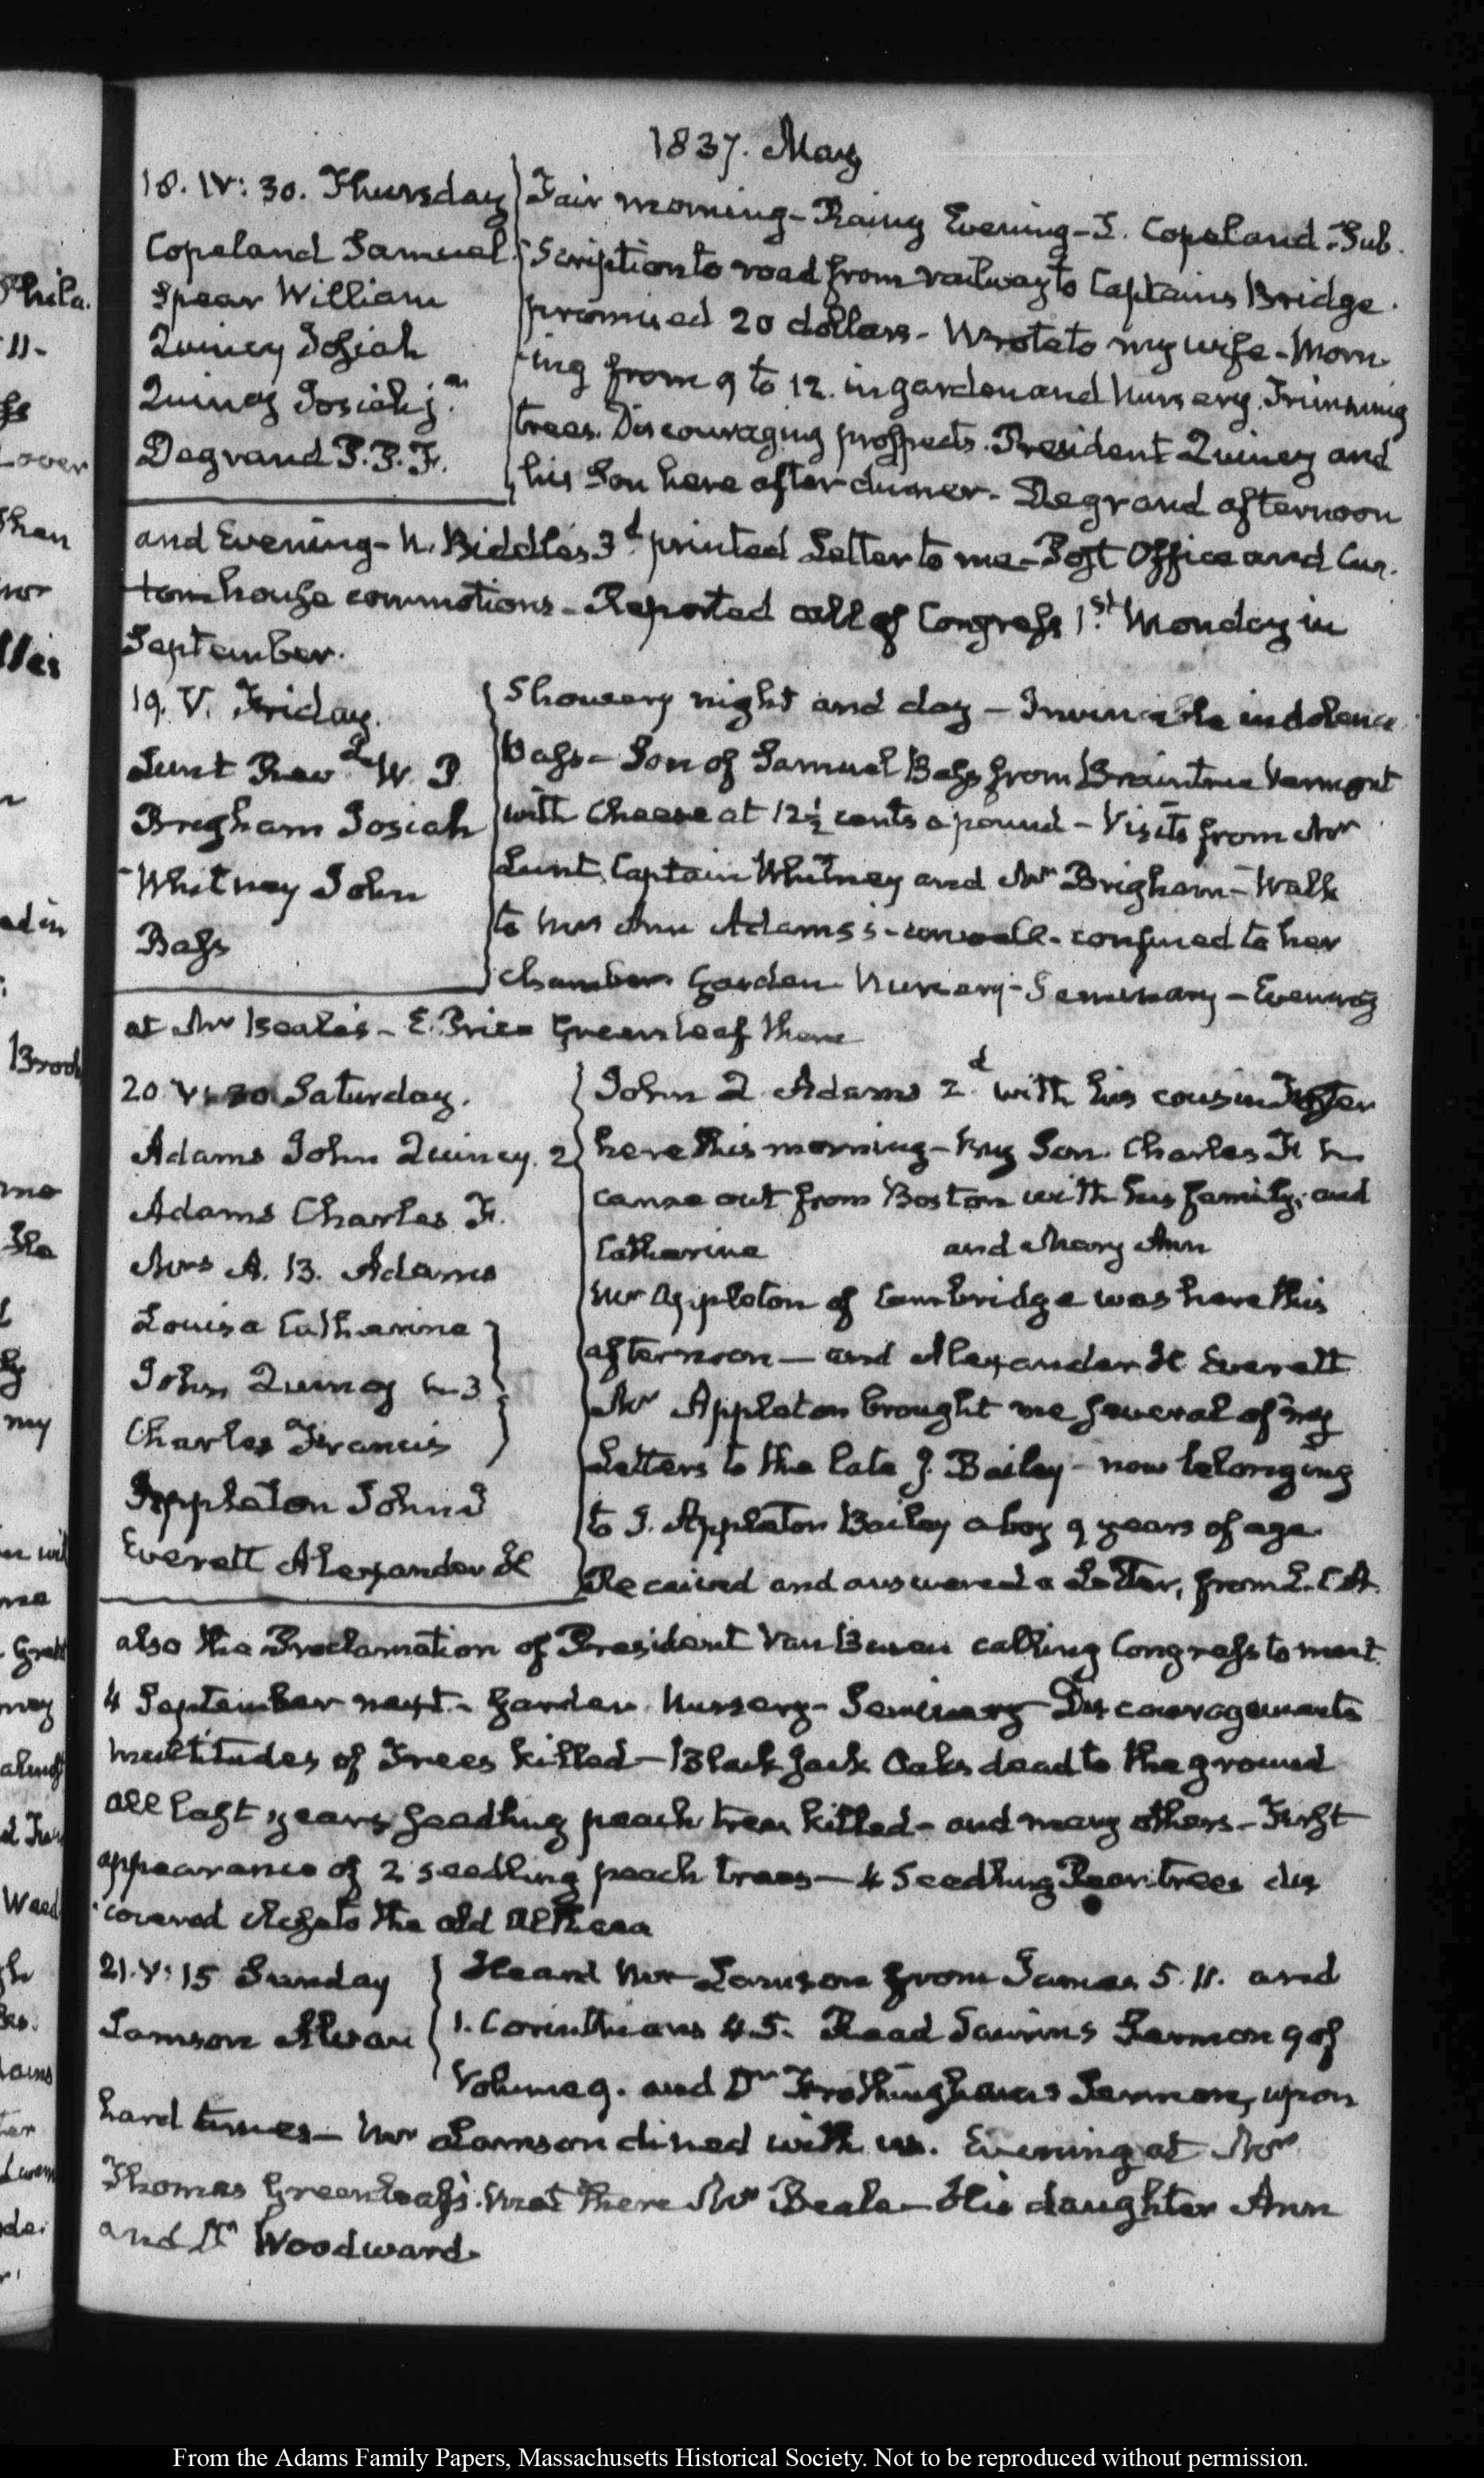 1837. May
18. IV: 30. Thursday
Copeland Samuel
Spear William
Quincy Josiah
Quincy Josiah j.r
Degrand P. P. F.
Fair morning - Rainy Evening - S. Copeland. Sub-
scription to road from railway to Captains Bridge.
promised 20 dollars - Wrote to my wife - Morn-
ing from 9 to 12. in garden and Nursery. Trimming
trees. Discouraging prospects. President Quincy and
his Son here after dinner - Degrand afternoon
and Evening - N. Biddle's 3d printed Letter to me - Post Office and Cus-
tom house commotions - Reported call of Congress 1st Monday in
September.
19. V. Friday.
Lunt Revd W. P.
Brigham Josiah
Whitney John
Bass
Showery night and day - Invincible indolence
Bass - Son of Samuel Bass from Braintree Vermont
with Cheese at 12½ cents a pound - Visits from Mr
Lunt, Captain Whitney and Mr Brigham - Walk
to Mrs Ann Adams's - unwell - confined to her
chamber Garden Nursery - Seminary - Evening
at Mr Beale's - E. Price Greenleaf there
20 V: 30 Saturday.
Adams John Quincy. 2
Adams Charles F.
Mrs A. B. Adams
Louisa Catharine
John Quincy 3
Charles Francis
Appleton John J
Everett Alexander H
John Q. Adams 2d with his cousin Foster
here this morning - My Son Charles F
came out from Boston with his family; and
Catharine and Mary Ann
Mr Appleton of Cambridge was here this
afternoon - and Alexander H Everett
Mr Appleton brought me several of my
Letters to the late J. Bailey - now belonging
to J. Appleton Bailey a boy 9 years of age
Received and answered a Letter, from L. C. A.
also the Proclamation of President Van Buren calling Congress to meet
4 September next. - Garden Nursery - Seminary Discouragements
multitudes of Trees killed - Black Jack Oaks dead to the ground
all last years seedling peach trees killed - and many others - First
appearance of 2 seedling peach trees - 4 Seedling Pear trees dis
covered the old Althea
21. V: 15 Sunday
Lamson Alvan
Heard Mr Lamson from James 5. 11. and
1. Corinthians 4. 5. Read Saurins Sermon 9 of
Volume 9. and Dr Frothinghams Sermon, upon
hard times - Mr Lamson dined with us. Evening at Mr
Thomas Greenleaf's. Met there Mr Beale - His daughter Ann
and Dr Woodward.
From the Adams Family Papers, Massachusetts Historical Society. Not to be reproduced without permission.